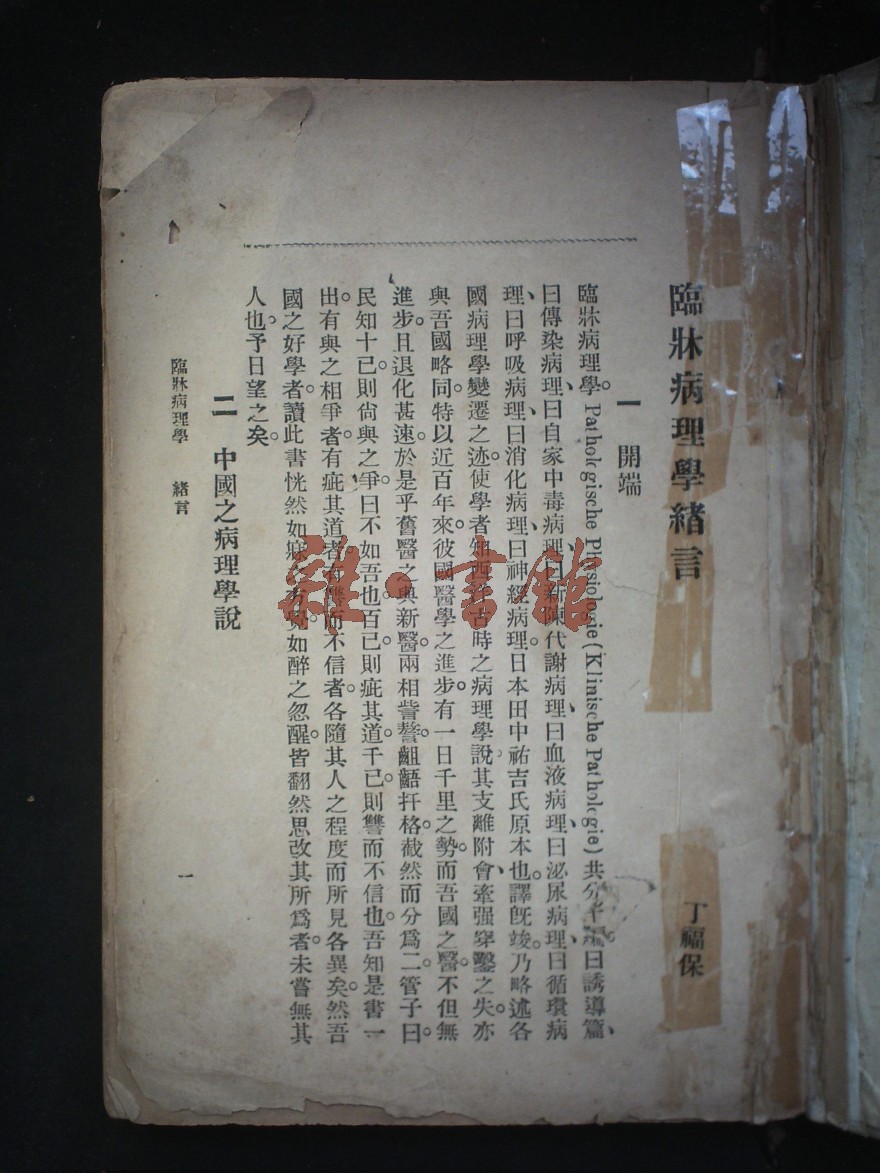 臨牀病理學緒言
丁福保
一 開端
臨牀病理學。Pathologische Physiologie (Klinische Pathologie) 共分 編。曰誘導篇、
曰傳染病理、曰自家中毒病理、曰新陳代謝病理、曰血液病理、曰泌尿病理、曰循環病
理、曰呼吸病理、曰消化病理、曰神經病理。日本田中祐吉氏原本也。譯旣竣。乃略述各
國病理學變遷之迹。使學者知西洋古時之病理學說。其支離附會、牽强穿鑿之失。亦
與吾國略同。特以近百年來。彼國醫學之進步。有一日千里之勢。而吾國之醫。不但無
進步。且退化甚速。於是乎舊醫之與新醫。兩相訾謷。齟齬扞格。截然而分爲二。管子曰。
民知十己。則尙與之爭。曰不如吾也。百己。則疵其道。千己。則讐而不信也。吾知是書一
出。有與之相爭者。有疵其道者。有讐而不信者。各隨其人之程度而所見各異矣。然吾
國之好學者。讀此書恍然如寐之有覺。如醉之忽醒。皆翻然思改其所爲者。未嘗無其
人也。予日望之矣。
二 中國之病理學說
臨牀病理學 緒言
一
雜·書館